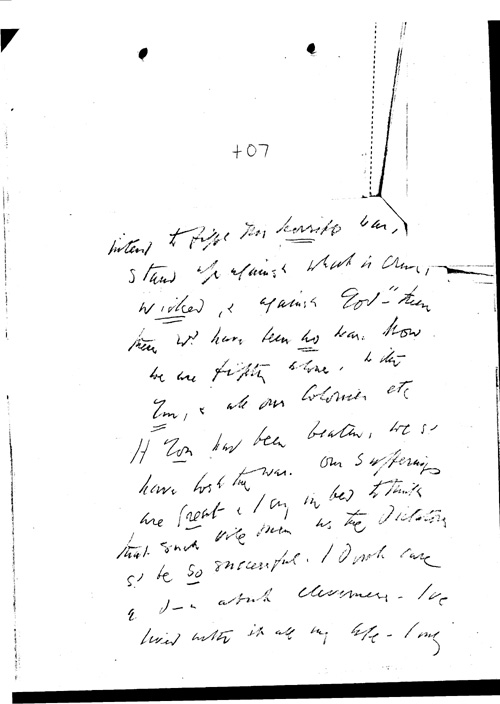 +07
intend to fight this horrible war,
stand up against what is cruel,
wicked, & against God" - then
there wd have been no war. Now
we are fighting alone,
You, & all our Colonies etc
If You had been beaten, we sd
have lost the war. Our sufferings
are great & I cry in bed to think
that such vile men as the Dictators
sd be so successful. I don't care
a d-n about cleverness - I've
lived with it all my life - I